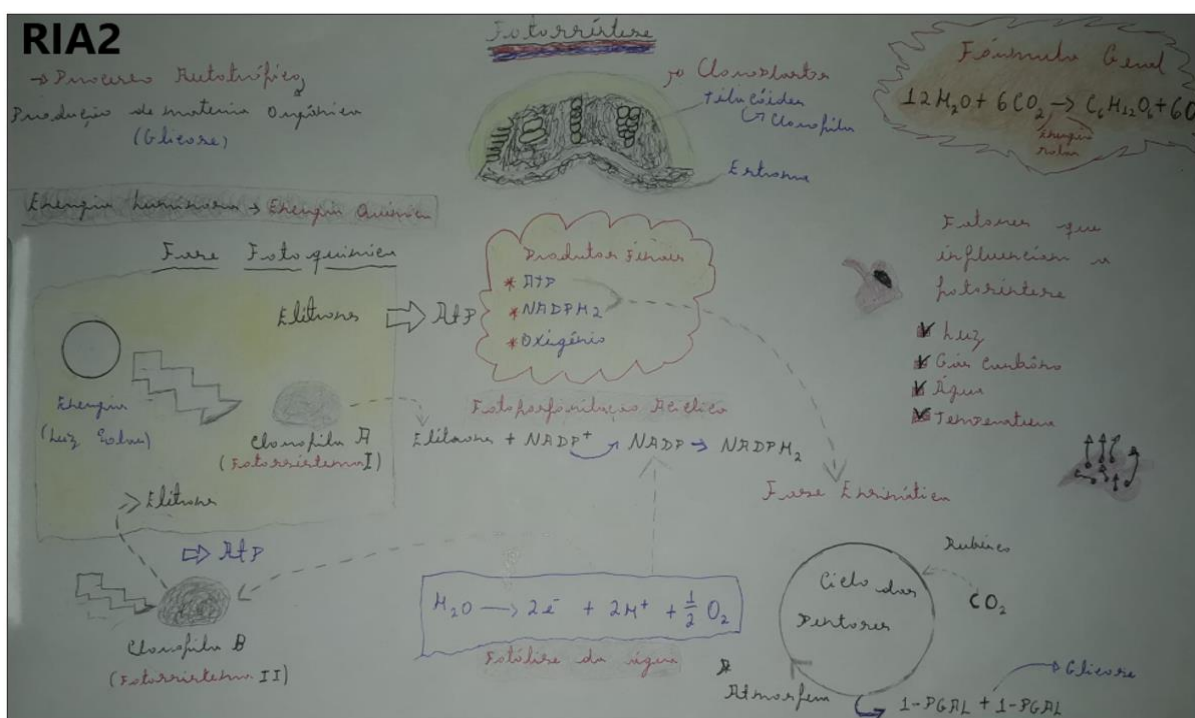 RIA2
Fotossíntese
→ Processo Autotrófico
Produção de matéria Orgânica
(Glicose)
→ Cloroplastos
Tilacóides
↳ Clorofila
Estroma
Fórmula Geral
12 H₂O + 6 CO₂ → C₆H₁₂O₆ + 6O
Energia
solar
Energia Luminosa → Energia Química
Fase Fotoquímica
Elétrons ⇨ AtP
Energia
(Luz Solar)
Clorofila A
(Fotossistema I)
> Elétrons
⇨ AtP
Clorofila B
(Fotossistema II)
Produtos Finais
* ATP
* NADPH2
* Oxigênio
Fotofosforilação Acíclica
Elétrons + NADP⁺ → NADP → NADPH₂
H₂O → 2é + 2H⁺ + 1/2 O₂
Fotólise da água
Fatores que
influenciam a
fotossíntese
Luz
Gás Carbôno
Água
Temperatura
Fase Enzimática
Ciclo das
Pentoses
Rubisco
CO₂
Atmosfera
1-PGAL + 1-PGAL
→ Glicose